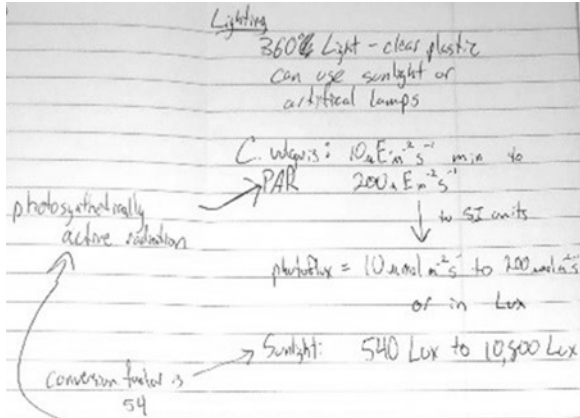 Lighting
360° Light - clear plastic
can use sunlight or
artifical lamps
C. vulgaris: 10 µE m⁻² s⁻¹ min to
PAR 200 µ E m⁻² s⁻¹
photosynthetically
active radiation
↓ to SI units
photoflux = 10 µmol m⁻² s⁻¹ to 200 µmol m⁻² s⁻¹
or in Lux
Sunlight: 540 Lux to 10,800 Lux
conversion factor is
54